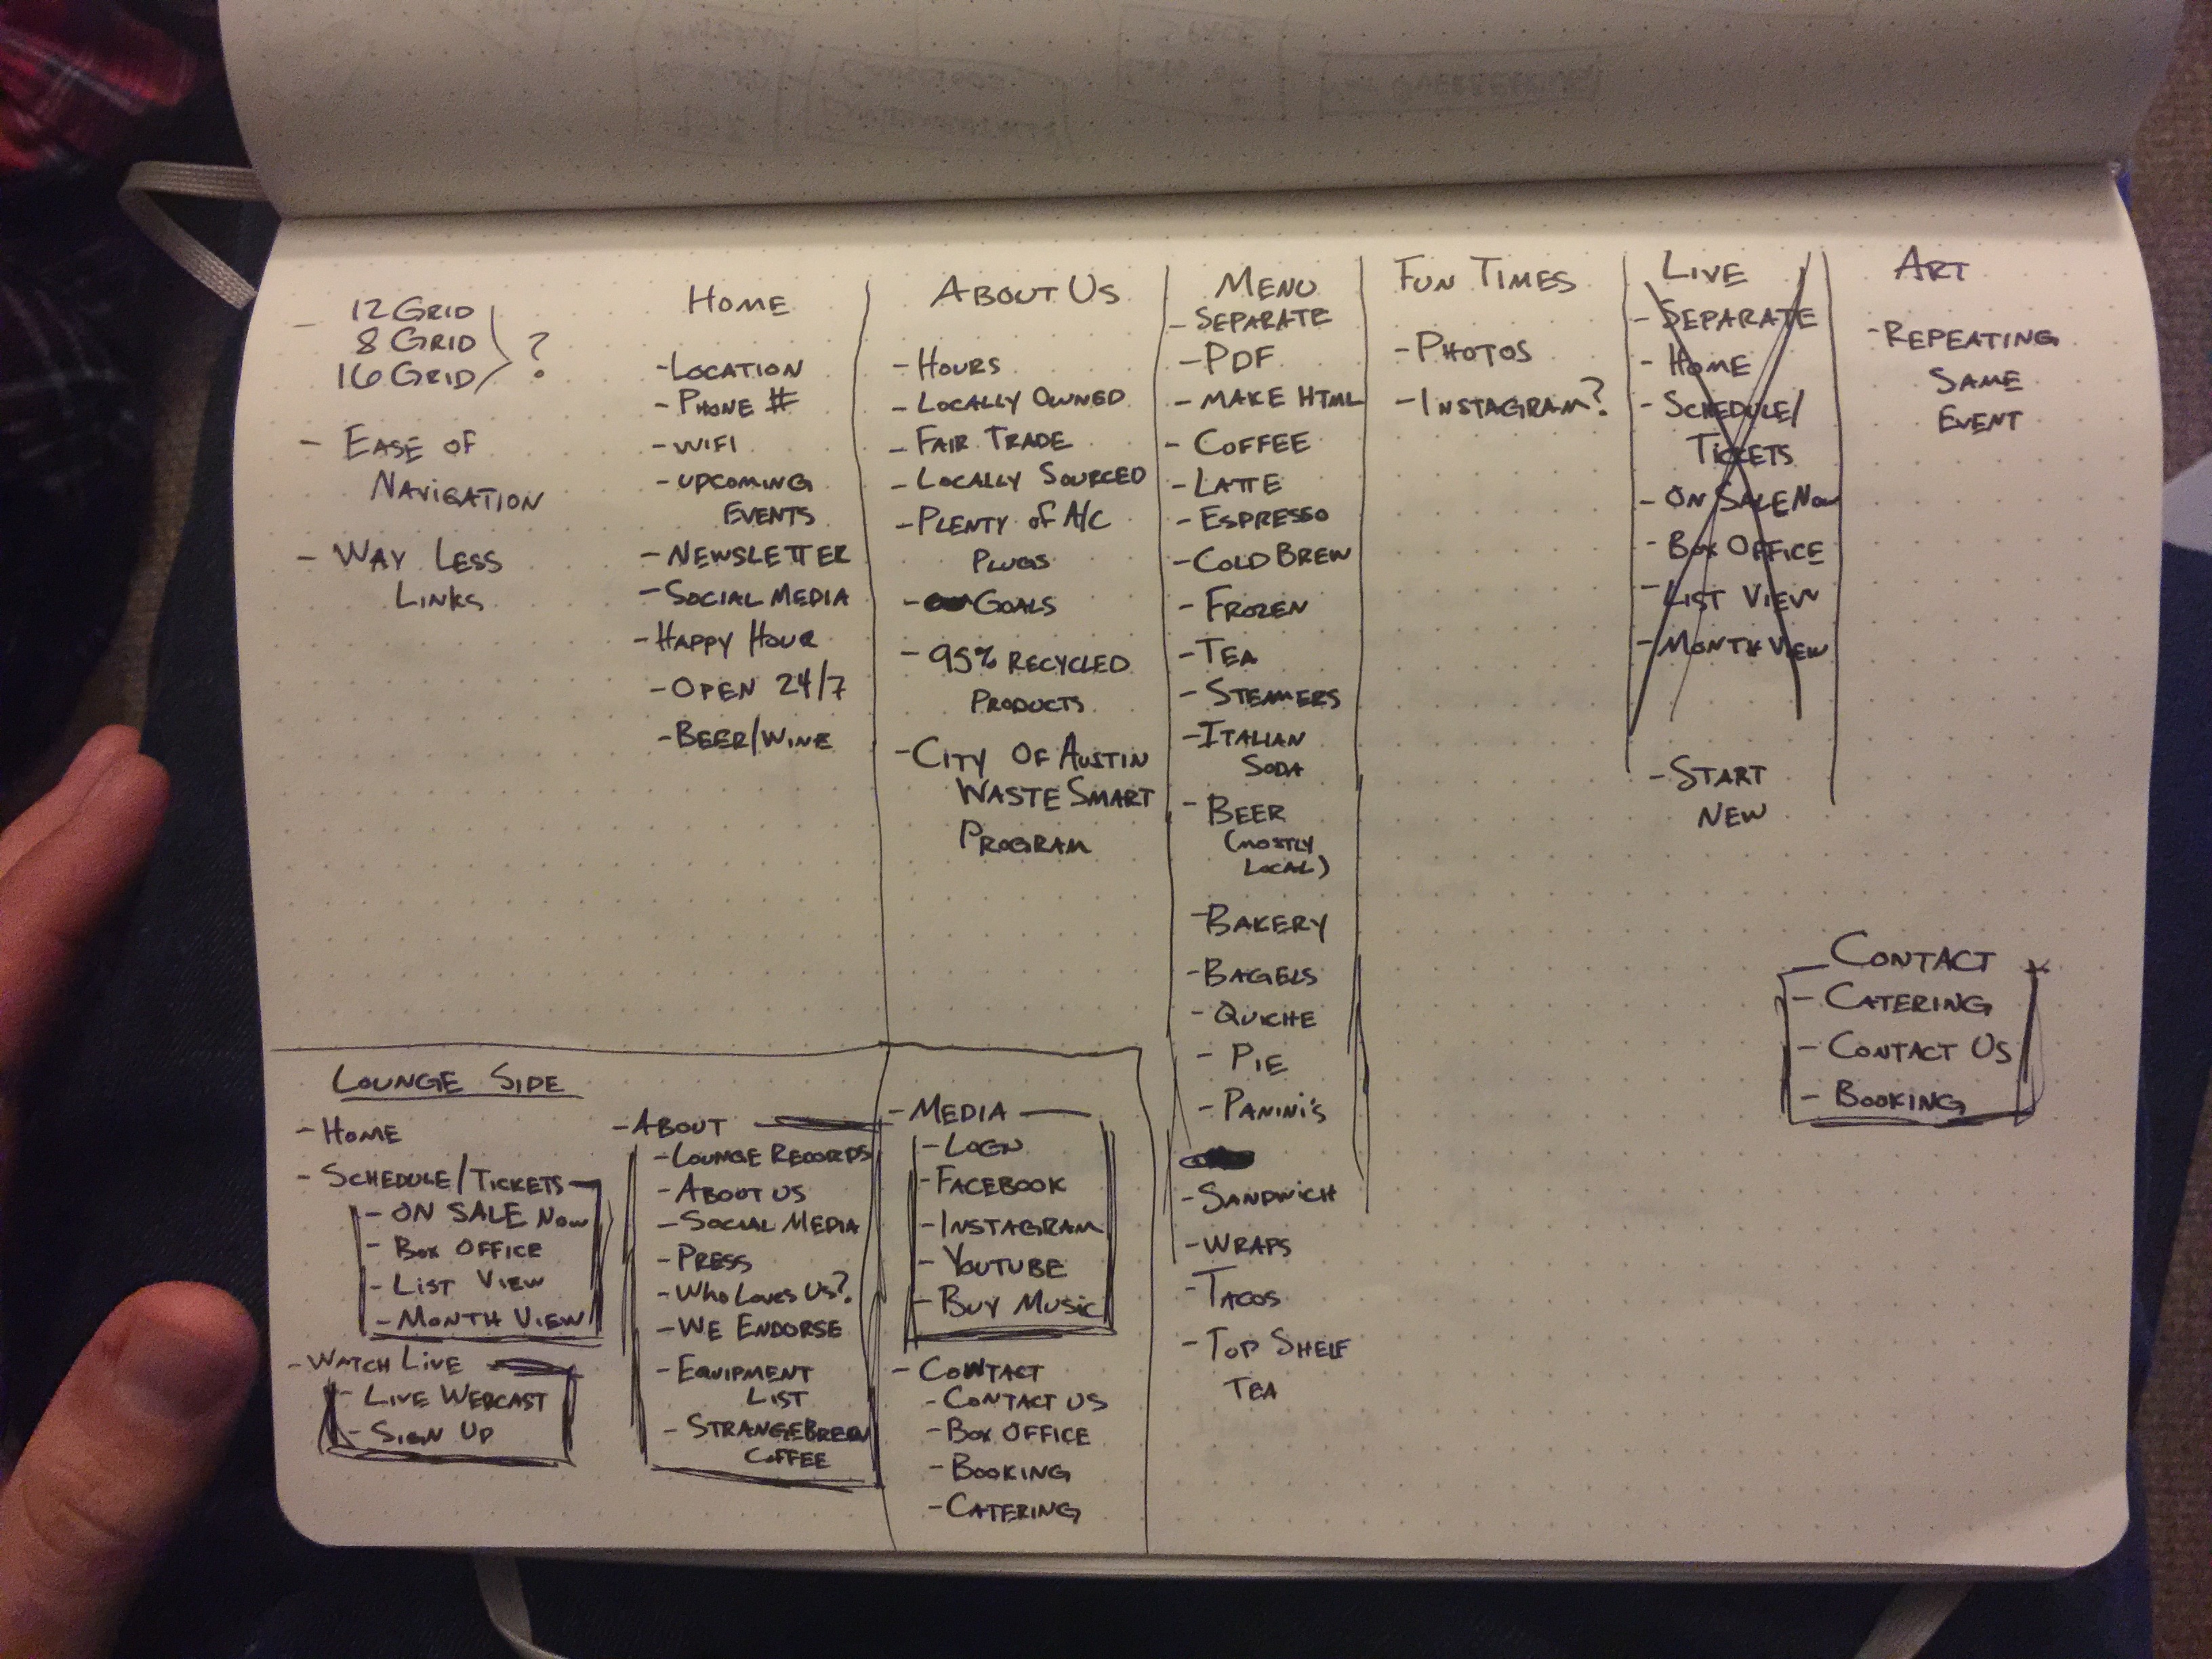 - 12 GRID
8 GRID
16 GRID
?
- EASE OF
NAVIGATION
- WAY LESS
LINKS
HOME
- LOCATION
- PHONE #
- WIFI
- UPCOMING
EVENTS
- NEWSLETTER
- SOCIAL MEDIA
- HAPPY HOUR
- OPEN 24/7
- BEER/WINE
ABOUT US
- HOURS
- LOCALLY OWNED
- FAIR TRADE
- LOCALLY SOURCED
- PLENTY OF A/C
PLUGS
- GOALS
- 95% RECYCLED
PRODUCTS
- CITY OF AUSTIN
WASTE SMART
PROGRAM
MENU
- SEPARATE
- PDF
- MAKE HTML
- COFFEE
- LATTE
- ESPRESSO
- COLD BREW
- FROZEN
- TEA
- STEAMERS
- ITALIAN
SODA
- BEER
(MOSTLY
LOCAL)
- BAKERY
- BAGELS
- QUICHE
- PIE
- PANINI'S
- SANDWICH
- WRAPS
- TACOS
- TOP SHELF
TEA
FUN TIMES
- PHOTOS
- INSTAGRAM?
LIVE
- SEPARATE
- HOME
- SCHEDULE/
TICKETS
- ON SALE NOW
- BOX OFFICE
- LIST VIEW
- MONTH VIEW
- START
NEW
ART
- REPEATING
SAME
EVENT
CONTACT
- CATERING
- CONTACT US
- BOOKING
LOUNGE SIDE
- HOME
- SCHEDULE/TICKETS
- ON SALE NOW
- BOX OFFICE
- LIST VIEW
- MONTH VIEW
- WATCH LIVE
- LIVE WEBCAST
- SIGN UP
- ABOUT
- LOUNGE RECORDS
- ABOUT US
- SOCIAL MEDIA
- PRESS
- WHO LOVES US?
- WE ENDORSE
- EQUIPMENT
LIST
- STRANGEBREW
COFFEE
- MEDIA
- LOGN
- FACEBOOK
- INSTAGRAM
- YOUTUBE
- BUY MUSIC
- CONTACT
- CONTACT US
- BOX OFFICE
- BOOKING
- CATERING